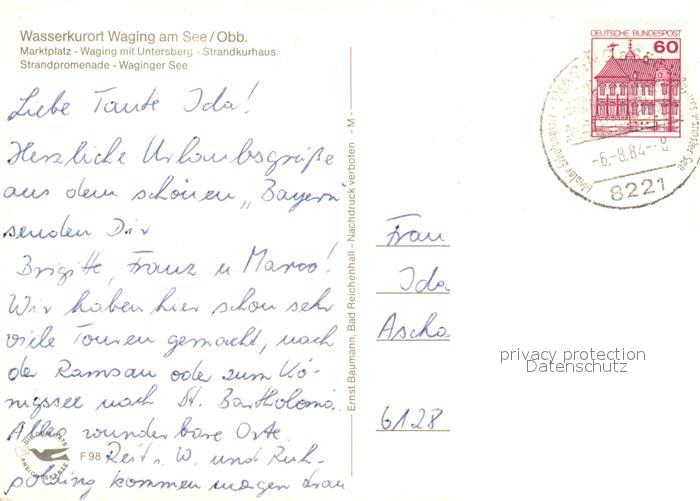 Wasserkurort Waging am See/Obb.
Marktplatz - Waging mit Untersberg - Strandkurhaus
Strandpromenade - Waginger See
Liebe Tante Ida!
Herzliche Urlaubsgrüße
aus dem schönen „Bayern“
senden Dir
Brigitte, Franz u Marco!
Wir haben hier schon sehr
viele Touren gemacht, nach
der Ramsau oder zum Kö-
nigssee nach St. Bartholomä.
Alles wunderbare Orte.
Reit i. W. und Ruh-
polding kommen morgen dran
F 98
Ernst Baumann, Bad Reichenhall - Nachdruck verboten - M -
DEUTSCHE BUNDESPOST
60
-6.-8.84--8
8221
Frau
Ida
Ascha
6128
privacy protection
Datenschutz